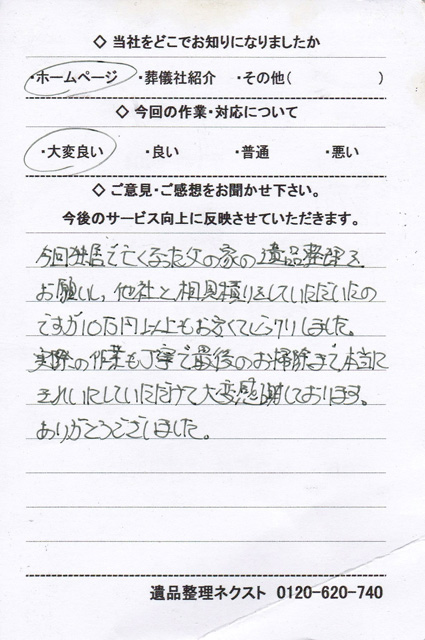 ◇ 当社をどこでお知りになりましたか
・ホームページ ・葬儀社紹介 ・その他( )
◇ 今回の作業・対応について
・大変良い ・良い ・普通 ・悪い
◇ ご意見・ご感想をお聞かせ下さい。
今後のサービス向上に反映させていただきます。
今回独居で亡くなった父の家の遺品整理を
お願いし、他社と相見積りをしていただいたの
ですが10万円以上もお安くてビックリしました。
実際の作業も丁寧で最後のお掃除まで本当に
きれいにしていただけて大変感謝しております。
ありがとうございました。
遺品整理ネクスト 0120-620-740